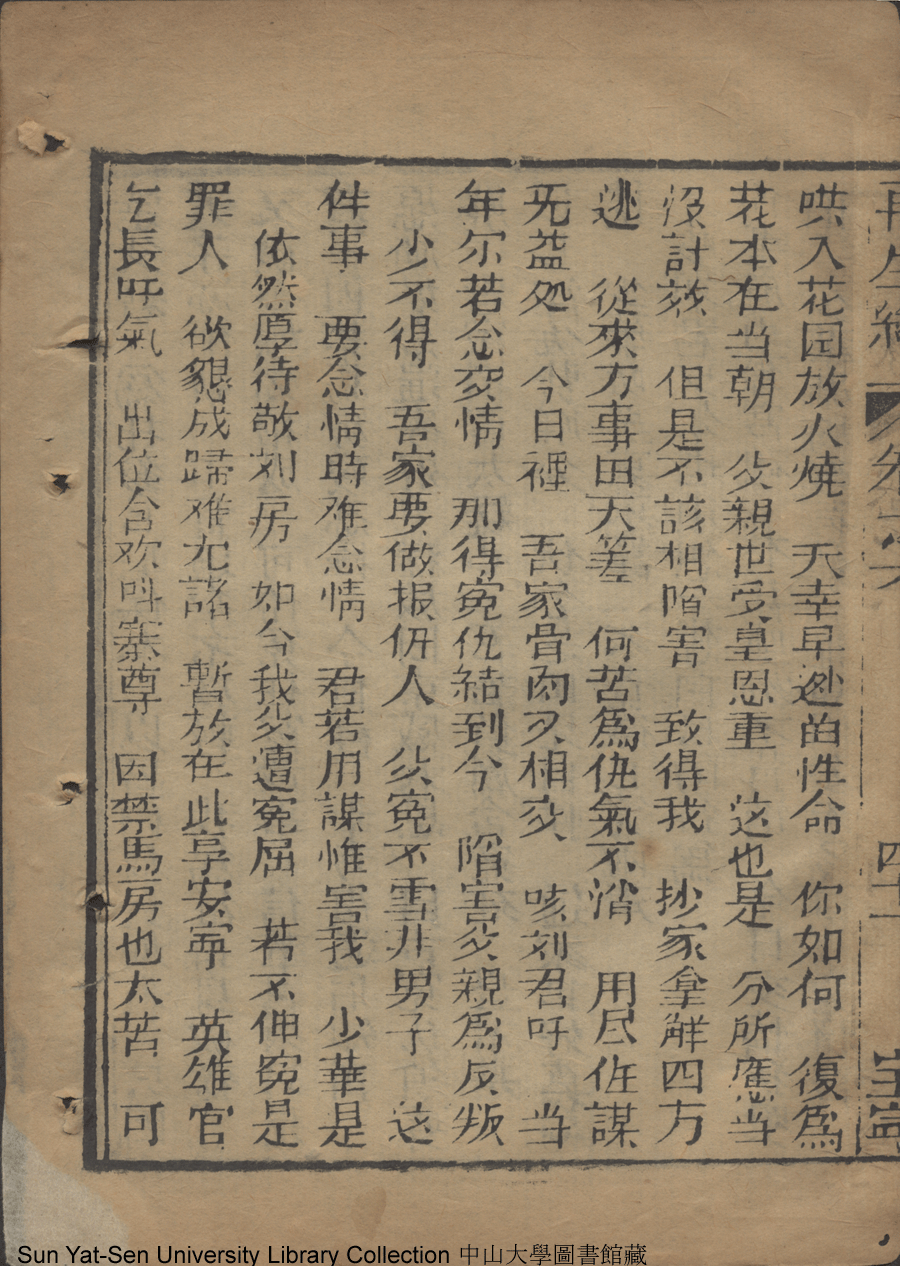 再生緣 卷之六 四十一
哄入花园放火燒 天幸早迯的性命 你如何 復為
花本在当朝 父親世受皇恩重 这也是 分所應当
没計効 但是不該相陷害 致得我 抄家拿解四方
逃 從來万事由天差 何苦為仇氣不消 用尽佐謀
旡益処 今日裡 吾家骨肉又相交 咳刘君吓 当
年尔若念交情 那得冤仇結到今 陷害父親為反叛
少不得 吾家要做报仇人 父冤不雪非男子 这
件事 要念情時难念情 君若用謀惟害我 少華是
依然厚待敬刘房 如今我父遭冤屈 若不伸冤是
罪人 欲懇成歸难允諾 暫放在此享安寧 英雄官
乞長吁氣 出位含欢呌寨尊 因禁馬房也太苦 可
Sun Yat-Sen University Library Collection 中山大學圖書館藏